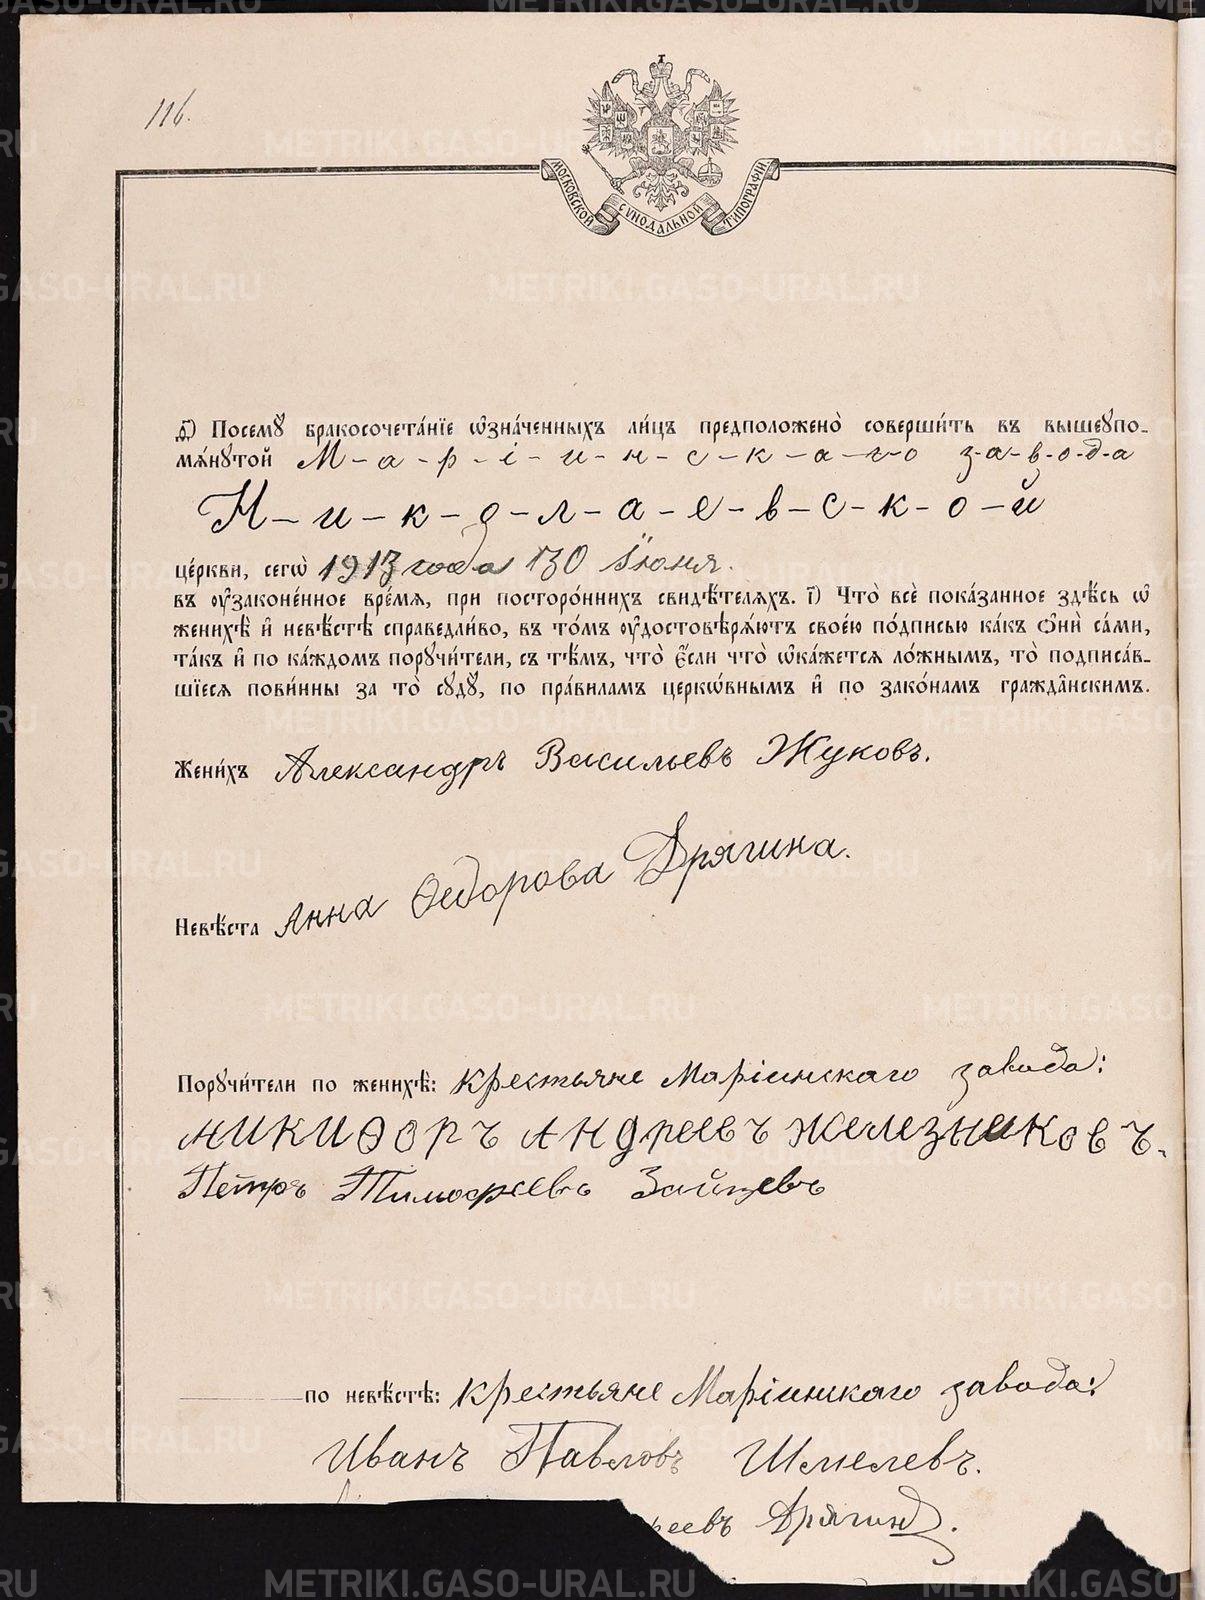 116.
МОСКОВСКОЙ СУНОДАЛЬНОЙ ТИПОГРАФІИ
Посемꙋ̀ бракосочета́нїе ѡ҆зна́ченныхъ ли́цъ предположено̀ соверши́ть въ вышеꙋпо-
мѧ́нꙋтой М-а-р-і-и-н-с-к-а-го за-в-о-д-а
Н-и-к-о-л-а-е-в-с-к-о-й
це́ркви, сегѡ̀ 1913 года 30 Іюня.
въ ᲂу҆законе́нное вре́мѧ, при посторо́ннихъ свидѣ́телѧхъ. і҃) Что̀ всѐ пока́занное здѣ́сь ѡ҆
женихѣ̀ и҆ невѣ́стѣ справедли́во, въ то́мъ ᲂу҆достовѣрѧ́ютъ свое́ю по́дписью ка́къ ѻ҆нѝ са́ми,
та́къ и҆ по ка́ждомъ порꙋчи́тели, съ тѣ́мъ, что̀ є҆́сли что̀ ѡ҆ка́жетсѧ ло́жнымъ, то̀ подписа́в-
шїесѧ пови́нны за то̀ сꙋдꙋ̀, по пра́виламъ церко́внымъ и҆ по зако́намъ гражда́нскимъ.
Жени́хъ Александръ Васильевъ Жуковъ.
Невѣ́ста Анна Ѳедорова Дрягина.
Порꙋчи́тели по женихѣ̀: крестьяне Маріинскаго завода:
Никиѳоръ Андреевъ Железниковъ.
Петръ Тимофеевъ Зайцевъ
по невѣ́стѣ: крестьяне Маріинскаго завода:
Иванъ Павловъ Шмелевъ.
реевъ Дрягинъ.
METRIKI.GASO-URAL.RU